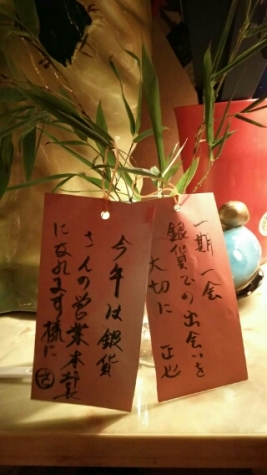 一期一会
銀貨での出会いを
大切に 正也
今年は銀貨
さんの営業本部長
になれます様に